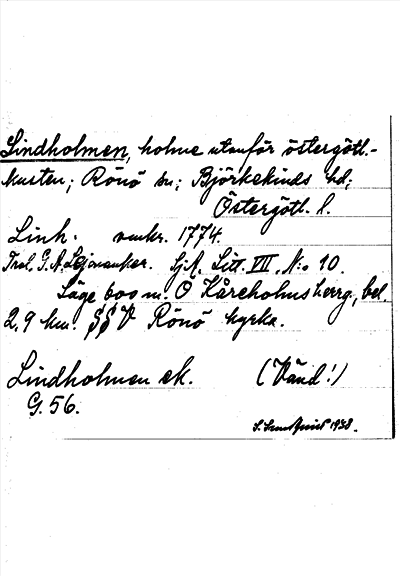 Lindholmen, holme utanför östergötl.-
kusten; Rönö sn; Björkekinds hd;
Östergötl. l.
Link. omkr. 1774.
Trol. G. A. Sj.A. Litt. VII, No 10.
Läge 600 m. O Kåreholms herrg., bel.
2,9 km. SSV Rönö kyrka.
Lindholmen ek. (Vänd!)
G. 56.
1938.